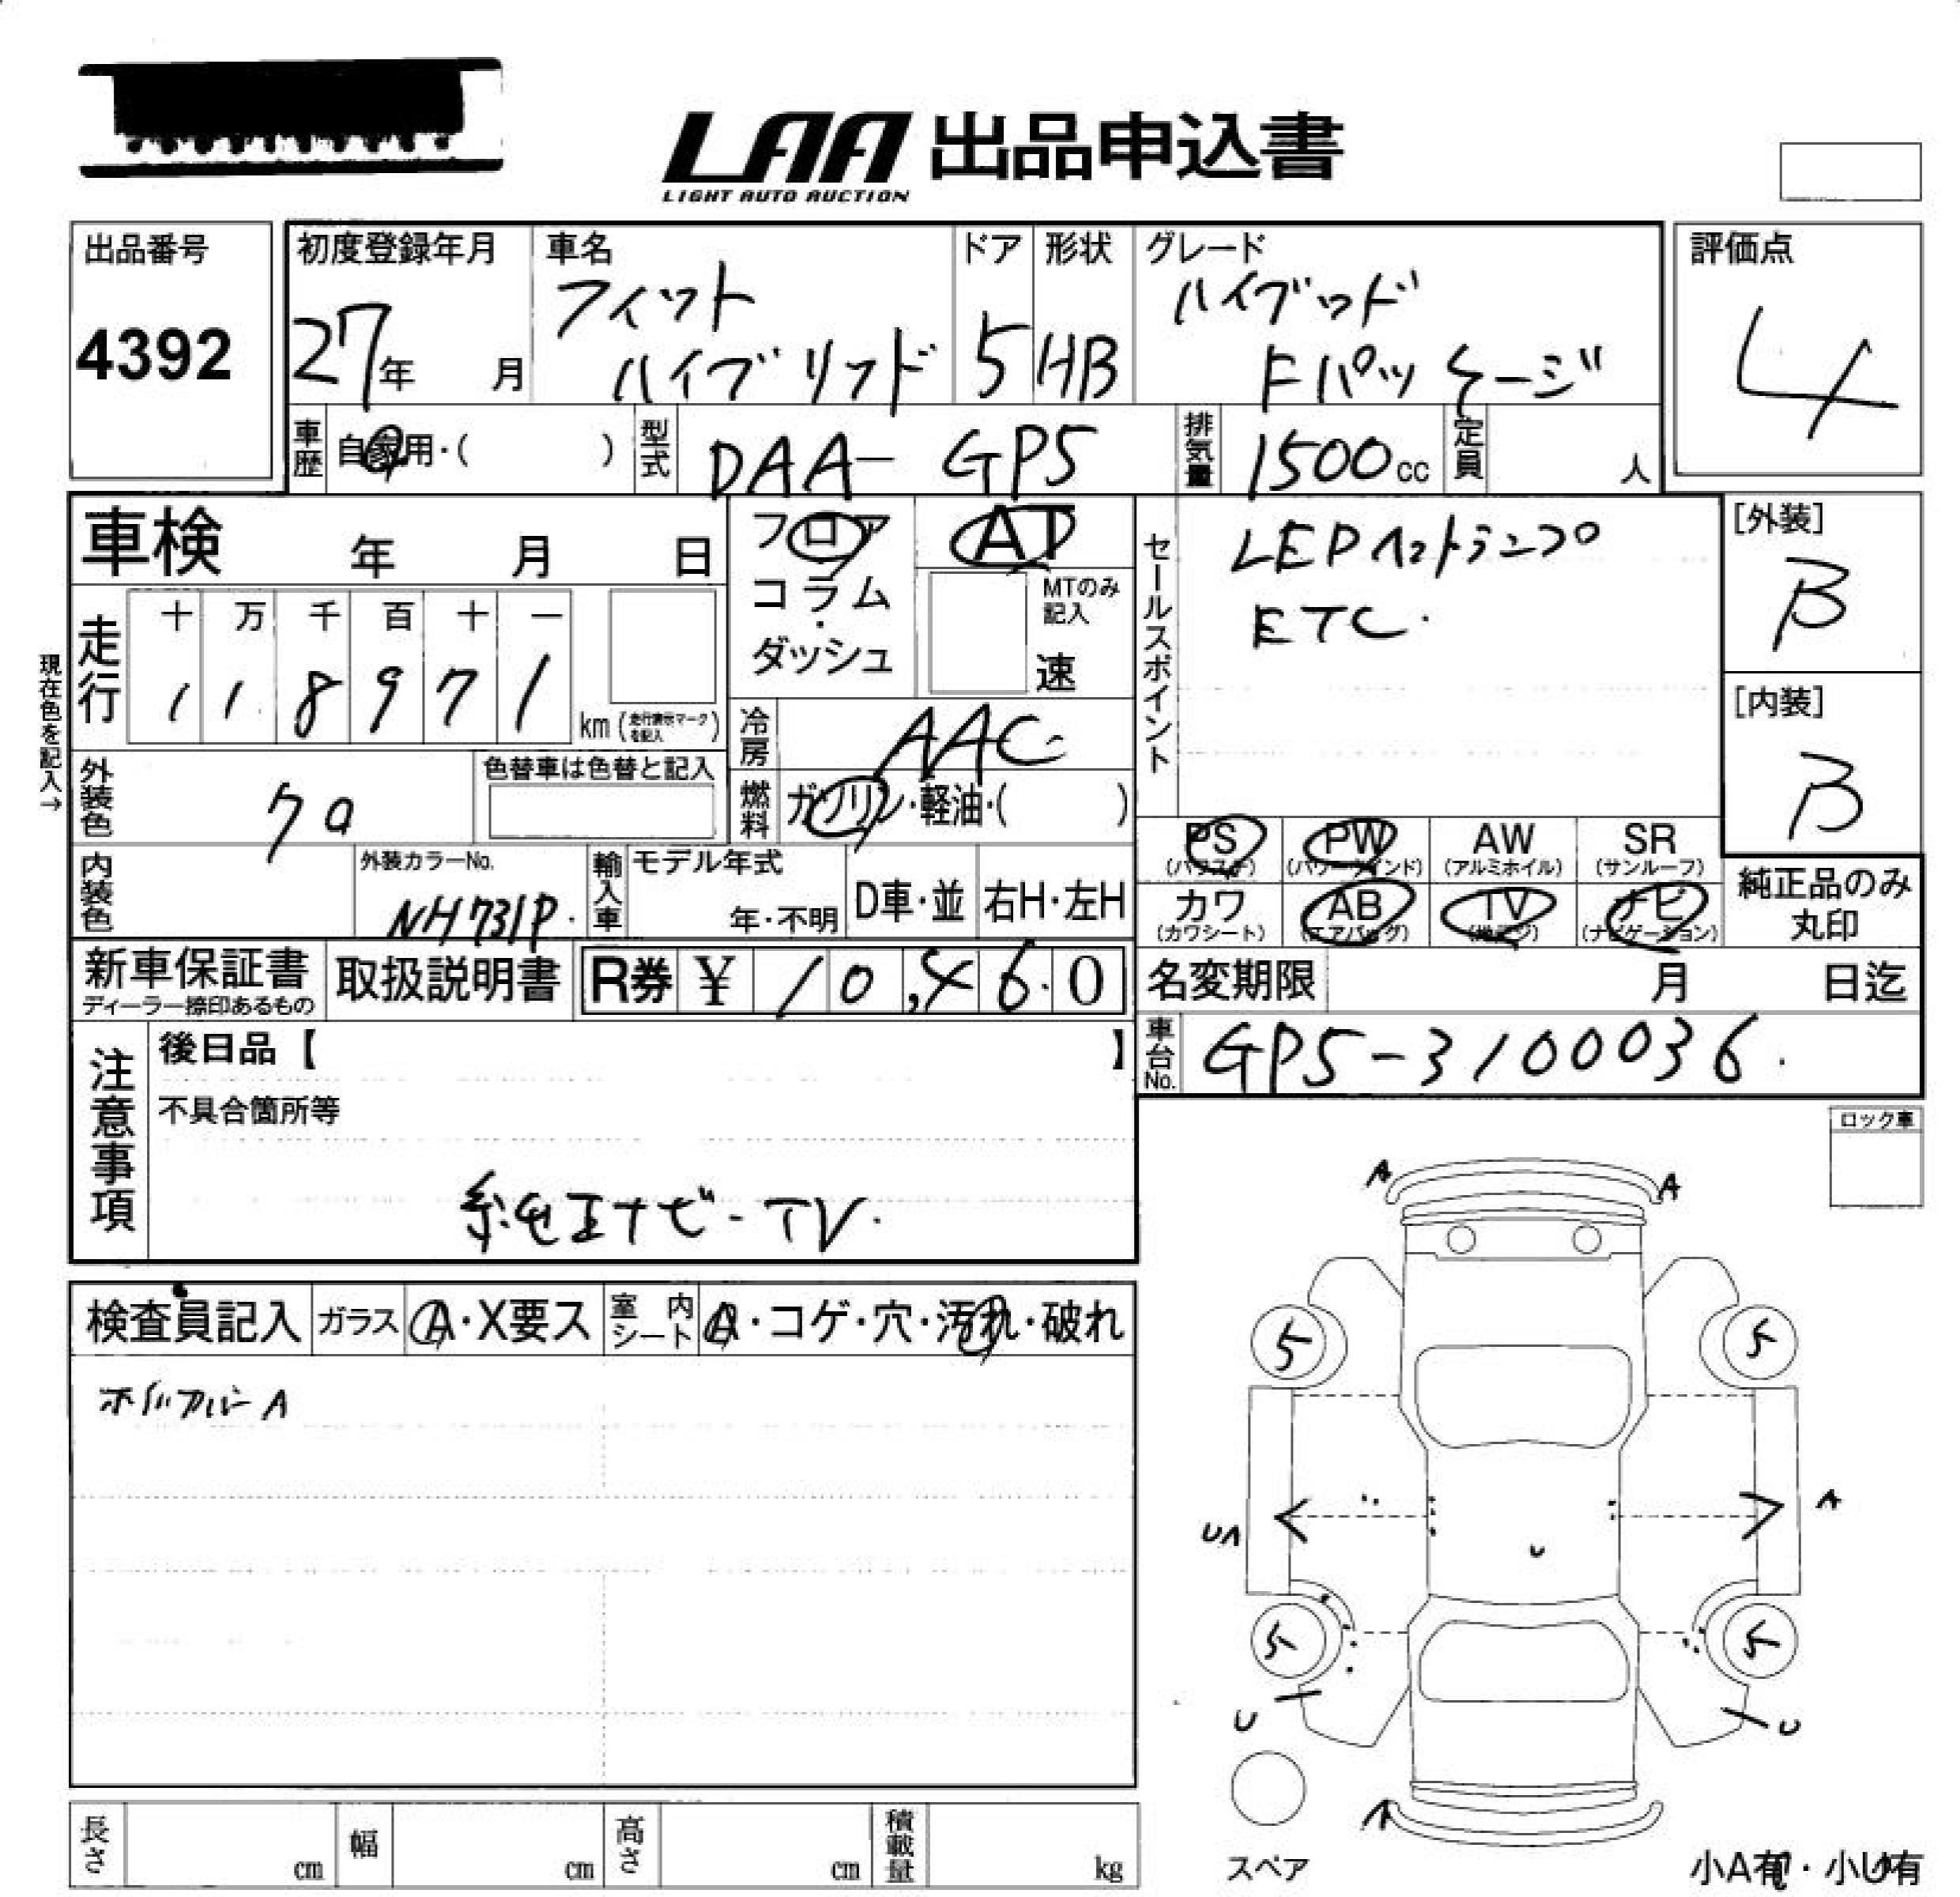 LAA 出品申込書
LIGHT AUTO AUCTION
出品番号
4392
初度登録年月
27年 月
車名
フィット
ハイブリッド
ドア
5
形状
HB
グレード
ハイブッド
Fパッケージ
評価点
4
車歴 自家用・( )
型式 DAA- GP5
排気量 1500cc
定員 人
車検 年 月 日
フロア
コラム・
ダッシュ
AT
MTのみ記入
速
セールスポイント
LEDヘットランプ
ETC.
[外装]
B
[内装]
B
現在色を記入→
走行
十 万 千 百 十 一
1 1 8 9 7 1
km (走行表示マークを記入)
冷房 AAC
外装色 クロ
色替車は色替と記入
燃料 ガソリン・軽油・( )
PS (パワステ)
PW (パワーウインド)
AW (アルミホイル)
SR (サンルーフ)
内装色
外装カラーNo.
NH731P.
輸入車
モデル年式
年・不明
D車・並
右H・左H
カワ (カワシート)
AB (エアバッグ)
TV (地デジ)
ナビ (ナビゲーション)
純正品のみ
丸印
新車保証書
ディーラー捺印あるもの
取扱説明書
R券 ¥ 10,460
名変期限 月 日迄
車台No. GP5-3100036.
注意事項
後日品【 】
不具合箇所等
純正ナビ-TV.
ロック車
検査員記入
ガラス A・X要ス
室内シート A・コゲ・穴・汚れ・破れ
A
A
A
5
5
UA
A
U
5
5
U
U
A
スペア
長さ cm
幅 cm
高さ cm
積載量 kg
小A有・小U有